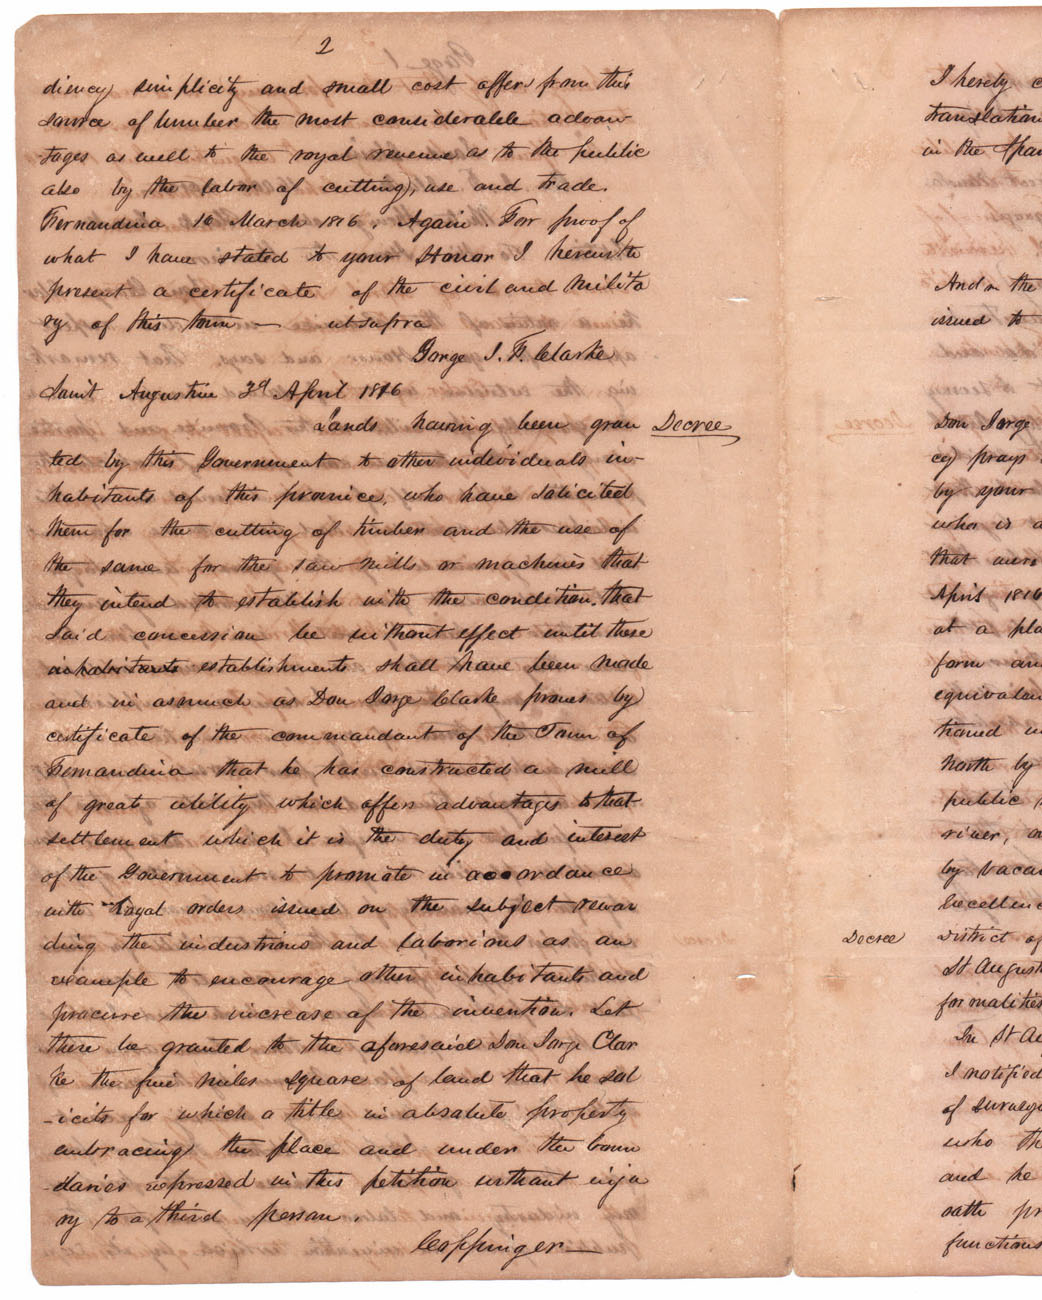 2
diency simplicity and small cost offers from this
source of lumber the most considerable advan
tages as well to the royal revenue as to the public
also by the labor of cutting, use and trade.
Fernandina 16 March 1816. Again. For proof of
what I have stated to your Honor I herewith
present a certificate of the civil and milita
ry of this town — ut supra
Gorge I. F. Clarke
Saint Augustine 3d April 1816
Lands having been gran
Decree
ted by this Government to other individuals in-
habitants of this province, who have solicited
them for the cutting of timber and the use of
the same for the saw mills or machines that
they intend to establish with the condition, that
said concession be without effect until these
inhabitants establishments shall have been made
and in asmuch as Don Jorge Clarke proves by
certificate of the commandant of the Town of
Fernandina that he has constructed a mill
of great utility which offers advantages to that
settlement which it is the duty and interest
of the Government to promote in accordance
with Royal orders issued on the subject rewar
ding the industrious and laborious as an
example to encourage other inhabitants and
procure the increase of the invention. Let
there be granted to the aforesaid Don Jorge Clar
ke the five miles square of land that he sol
-icits for which a title in absolute property
embracing the place and under the boun
-daries expressed in this petition without inju
ry to a third person.
Coppinger —
I hereby
translation
in the Span
And on the
issued to
Don Jorge
cy) prays
by your
who is a
that
April 1816
at a pla
form an
equivalen
tioned
North by
public
river,
by vaca
Excellenc
Decree
District of
St August
formalities
In St Au
I notified
of Survey
who th
and he
oath pr
functions